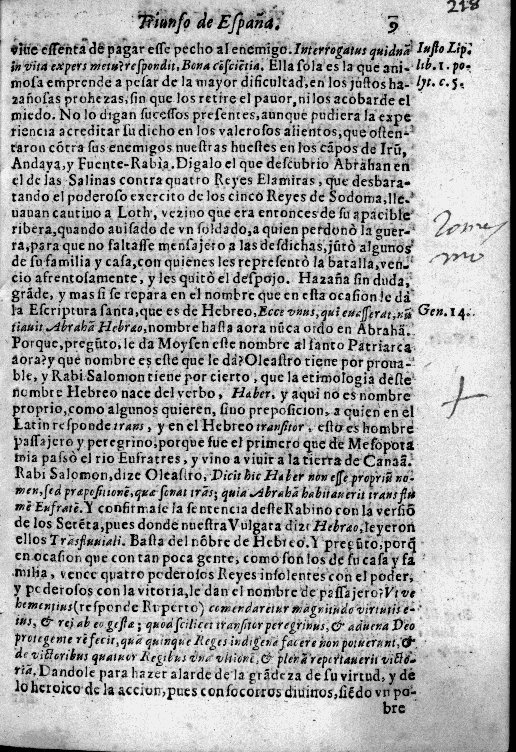 218
Triunfo de España. 9
viue essenta de pagar esse pecho al enemigo. Interrogatus quidnã
in vita expers metu? respondit, Bona cõsciẽtia. Ella sola es la que ani-
mosa emprende a pesar de la mayor dificultad, en los justos ha-
zañosas prohezas, sin que los retire el pauor, ni los acobarde el
miedo. No lo digan sucessos presentes, aunque pudiera la expe
riencia acreditar su dicho en los valerosos alientos, que osten-
taron cõtra sus enemigos nuestras huestes en los cãpos de Irũ,
Andaya, y Fuente-Rabia. Digalo el que descubrio Abrahan en
el de las Salinas contra quatro Reyes Elamitas, que desbara-
tando el poderoso exercito de los cinco Reyes de Sodoma, lle-
uauan cautiuo a Loth, vezino que era entonces de su apacible
ribera, quando auisado de vn soldado, a quien perdonò la guer-
ra, para que no faltasse mensajero a las desdichas, jũtò algunos
de so familia y casa, con quienes les representò la batalla, ven-
cio afrentosamente, y les quitò el despojo. Hazaña sin duda,
grãde, y mas si se repara en el nombre que en esta ocasion le dà
la Escriptura santa, que es de Hebreo, Ecce vnus, qui euasserat, nũ
tiauit Abrahã Hebrao, nombre hasta aora nũca oido en Abrahã.
Porque, pregũto, le da Moysen este nombre al santo Patriarca
aora? y què nombre es este que le dà? Oleastro tiene por proua-
ble, y Rabi Salomon tiene por cierto, que la etimologia deste
nombre Hebreo nace del verbo, Haber. y aqui no es nombre
proprio, como algunos quieren, sino preposicion, a quien en el
Latin responde trans, y en el Hebreo transitor, esto es hombre
passajero y peregrino, porque fue el primero que de Mesopota
mia passò el rio Eufratres, y vino a viuir a la tierra de Canaã.
Rabi Salomon, dize Oleastro, Dicit hic Haber non esse propriũ no-
men, sed præpositionẽ, quæ sonat trãs; quia Abrahã habitauerit trans flu
mẽ Eufratẽ. Y confirmase la sentencia deste Rabino con la versiõ
de los Setẽta, pues donde nuestra Vulgata dize Hebrao, leyeron
ellos Trãsfluuiali. Basta del nõbre de Hebreo. Y pregũto, porq̃
en ocasion que con tan poca gente, como son los de su casa y fa
milia, vence quatro poderosos Reyes insolentes con el poder,
y poderosos con la vitoria, le dan el nombre de passajero? Vt ve
hementius (responde Ruperto) comendaretur magnitudo virtutis e-
ius, & rei ab eo gestæ; quod scilicet transitor peregrinus, & aduena Deo
protegente rẽ fecit, quã quinque Reges indigenæ facere non potuerunt, &
de victoribus quatuor Regibus vna vltione, & plenã reportauerit victo-
riã. Dandole para hazer alarde de la grãdeza de su virtud, y de
lo heroico de la accion, pues con socorros diuinos, siẽdo vn po-
bre
Iusto Lip.
lib. 1. po-
lyt. c. 5.
Gen. 14.